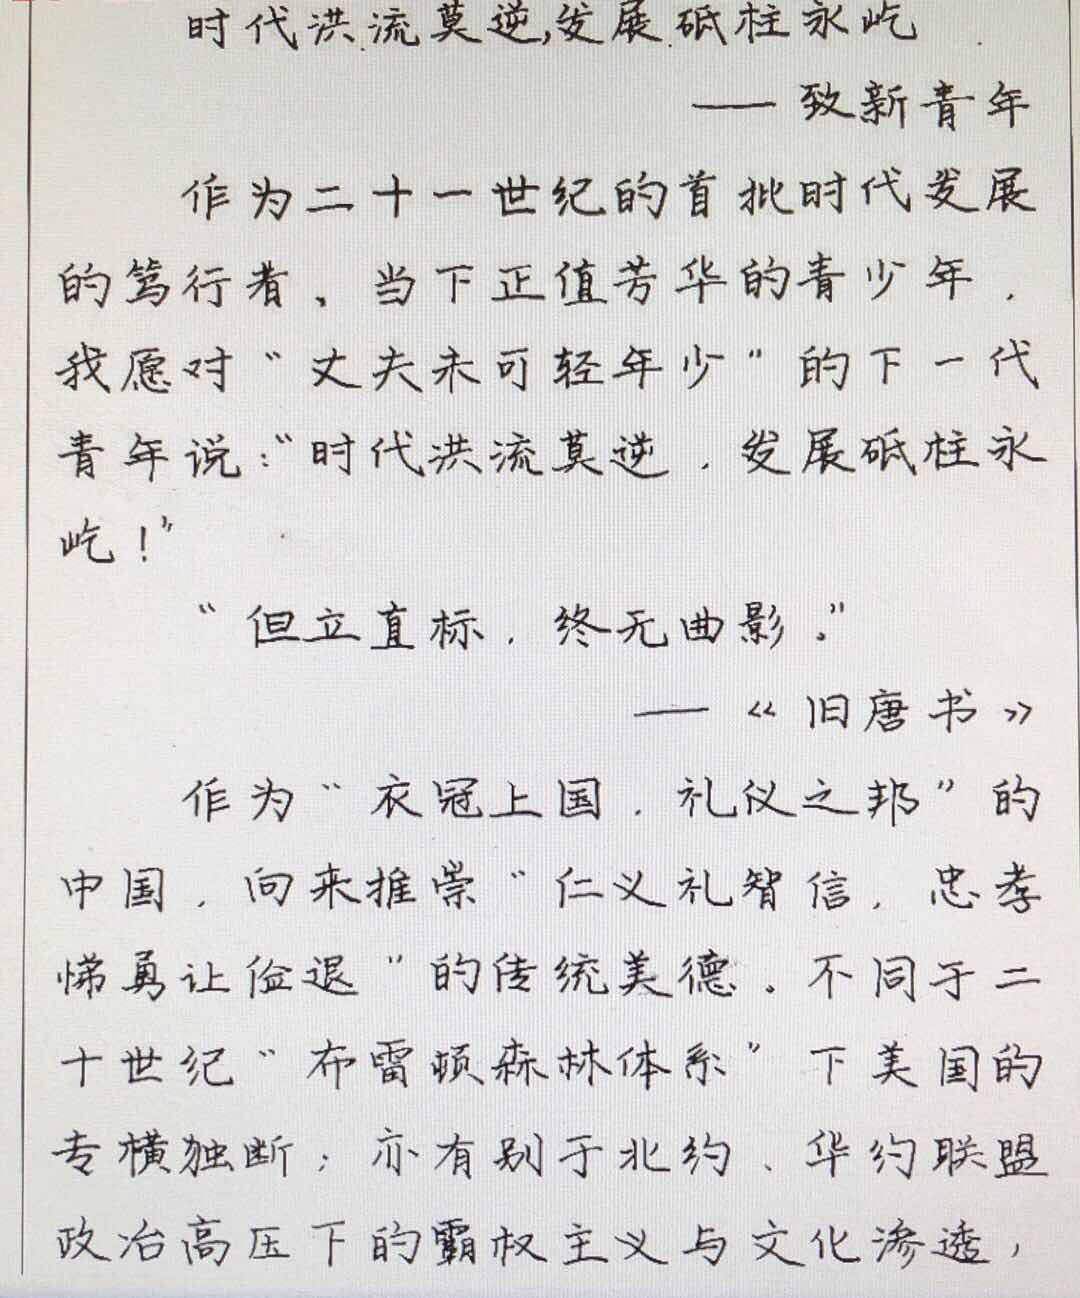 时代洪流莫逆,发展砥柱永屹
——致新青年
作为二十一世纪的首批时代发展
的笃行者、当下正值芳华的青少年，
我愿对“丈夫未可轻年少”的下一代
青年说：“时代洪流莫逆，发展砥柱永
屹！”
“但立直标，终无曲影。”
——《旧唐书》
作为“衣冠上国，礼仪之邦”的
中国，向来推崇“仁义礼智信，忠孝
悌勇让俭退”的传统美德。不同于二
十世纪“布雷顿森林体系”下美国的
专横独断；亦有别于北约、华约联盟
政治高压下的霸权主义与文化渗透，